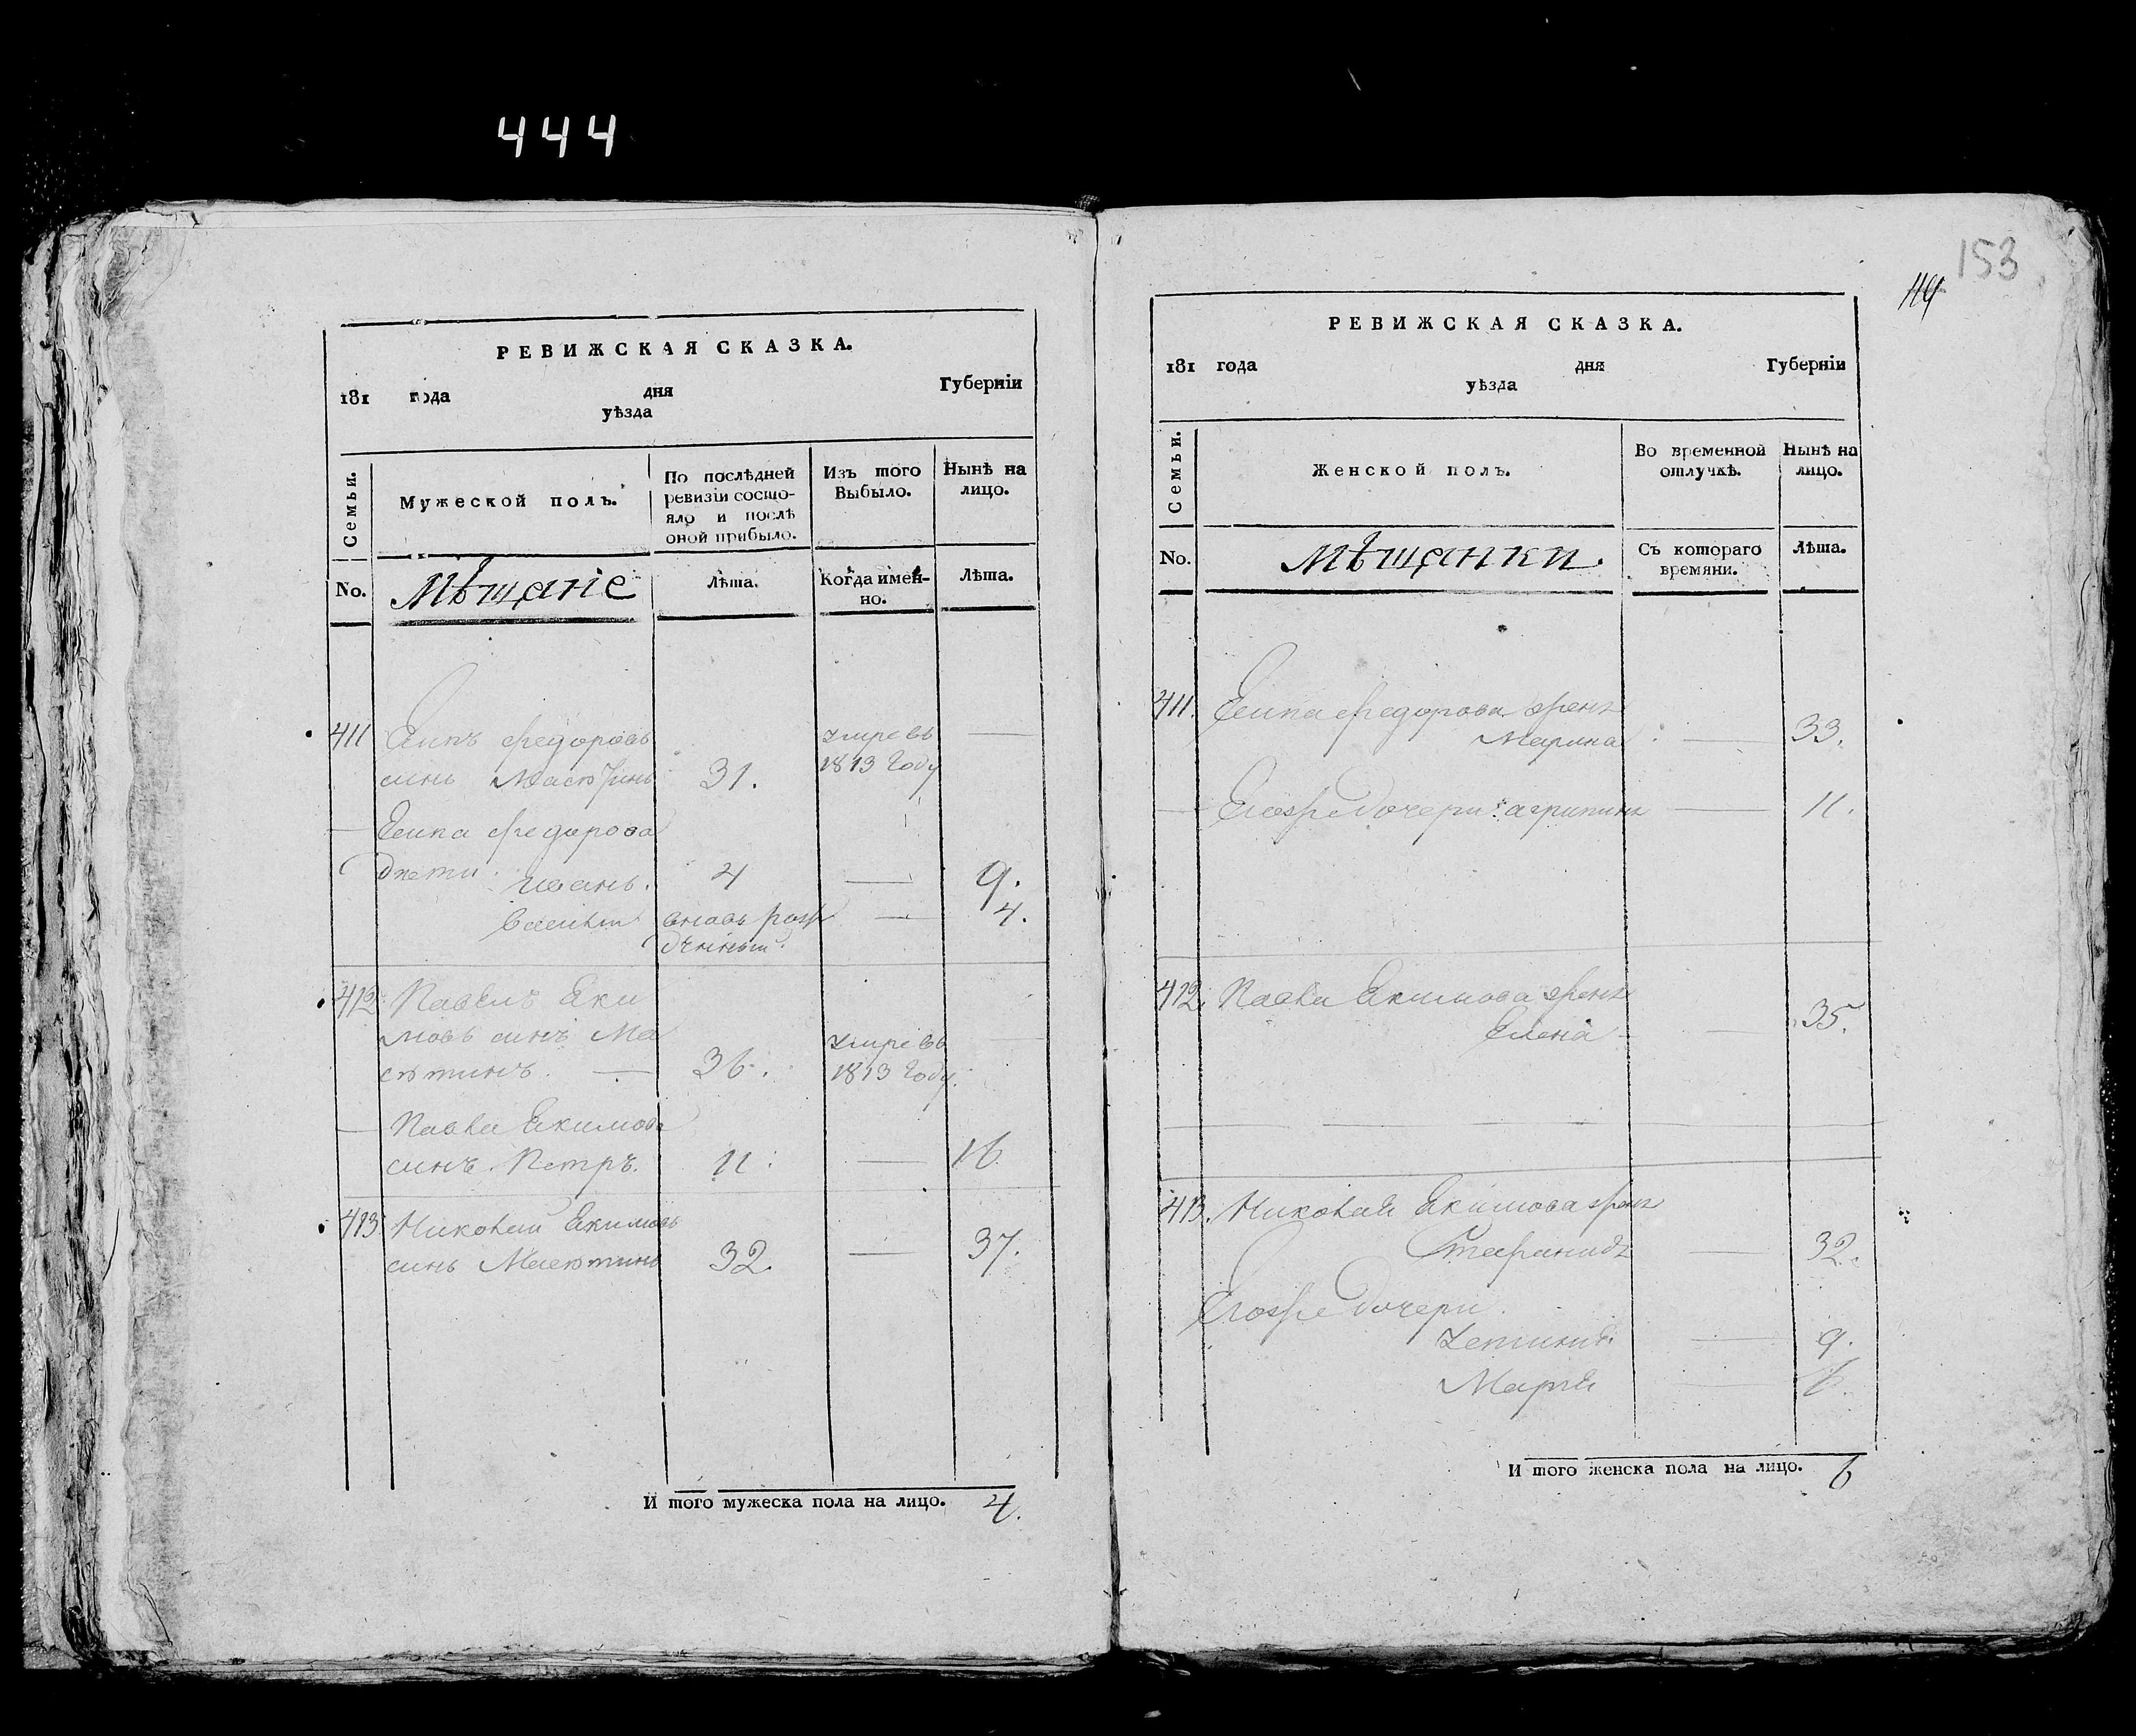 444
153
114
РЕВИЖСКАЯ СКАЗКА.
181 года дня Губерніи
уѣзда
Семьи.
Мужеской полъ.
По послѣдней ревизіи состояло и послѣ оной прибыло.
Изъ того Выбыло.
Нынѣ на лицо.
No.
Мѣщаніе
Лѣта.
Когда именно.
Лѣта.
411
Федоровъ
умре въ
—
сынъ
31.
1813 году
— Федорова
дѣти
Иванъ.
4
—
9.
вновь рож
—
4.
денный.
412
Павелъ Еки
мовъ сынъ Ма
умре въ
сютинъ. —
36.
1813 году.
—
Павла Екимова
сынъ. Петръ.
11.
—
16
413
Николай Екимовъ
сынъ Масютинъ
32.
—
37.
И того мужеска пола на лицо. 4.
РЕВИЖСКАЯ СКАЗКА.
181 года дня Губерніи
уѣзда
Семьи.
Женской полъ.
Во временной отлучкѣ.
Нынѣ на лицо.
No.
Мѣщанки.
Съ котораго времяни.
Лѣта.
411.
Федорова жена
Марина
—
33.
— Егожъ дочери: агрипина
—
11.
412.
Павла Екимова жена
Елена
—
35.
413.
Николая Екимова жена
Стефанида
—
32.
Егожъ дочери.
—
9.
Марья
—
6.
И того женска пола на лицо. 6